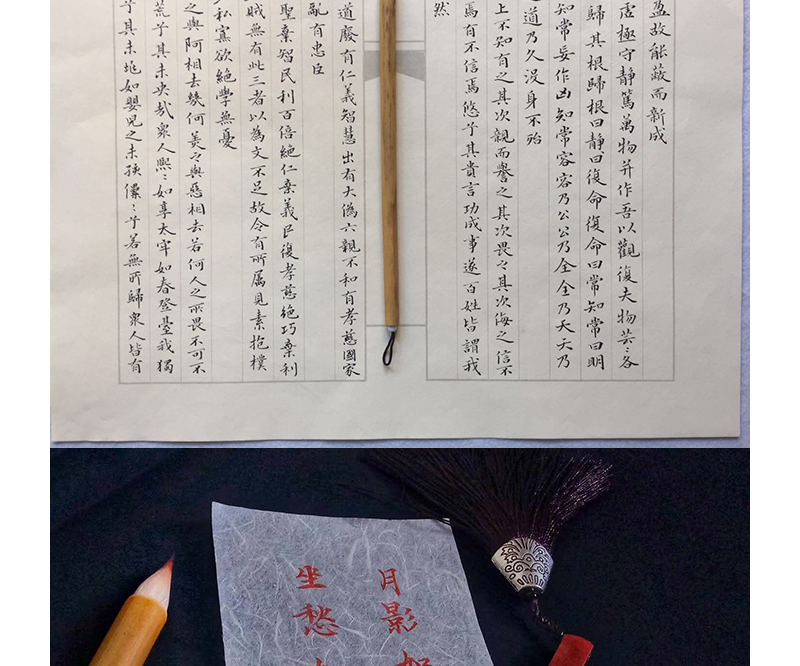 盈故能蔽而新成
虛極守靜篤萬物并作吾以觀復夫物芸〻各
歸其根歸根曰靜曰復命復命曰常知常曰明
知常妄作凶知常容容乃公公乃全全乃天天乃
道乃久沒身不殆
上不知有之其次親而譽之其次畏之其次侮之信不
焉有不信焉悠乎其貴言功成事遂百姓皆謂我
然
道廢有仁義智慧出有大偽六親不和有孝慈國家
亂有忠臣
聖棄智民利百倍絕仁棄義民復孝慈絕巧棄利
賊無有此三者以為文不足故令有所属見素抱樸
私寡欲絕學無憂
之與阿相去幾何美之與惡相去若何人之所畏不可不
荒兮其未央哉衆人熙〻如享太牢如春登臺我獨
兮其未兆如嬰兒之未孩儽〻兮若無所歸衆人皆有
月影
坐愁